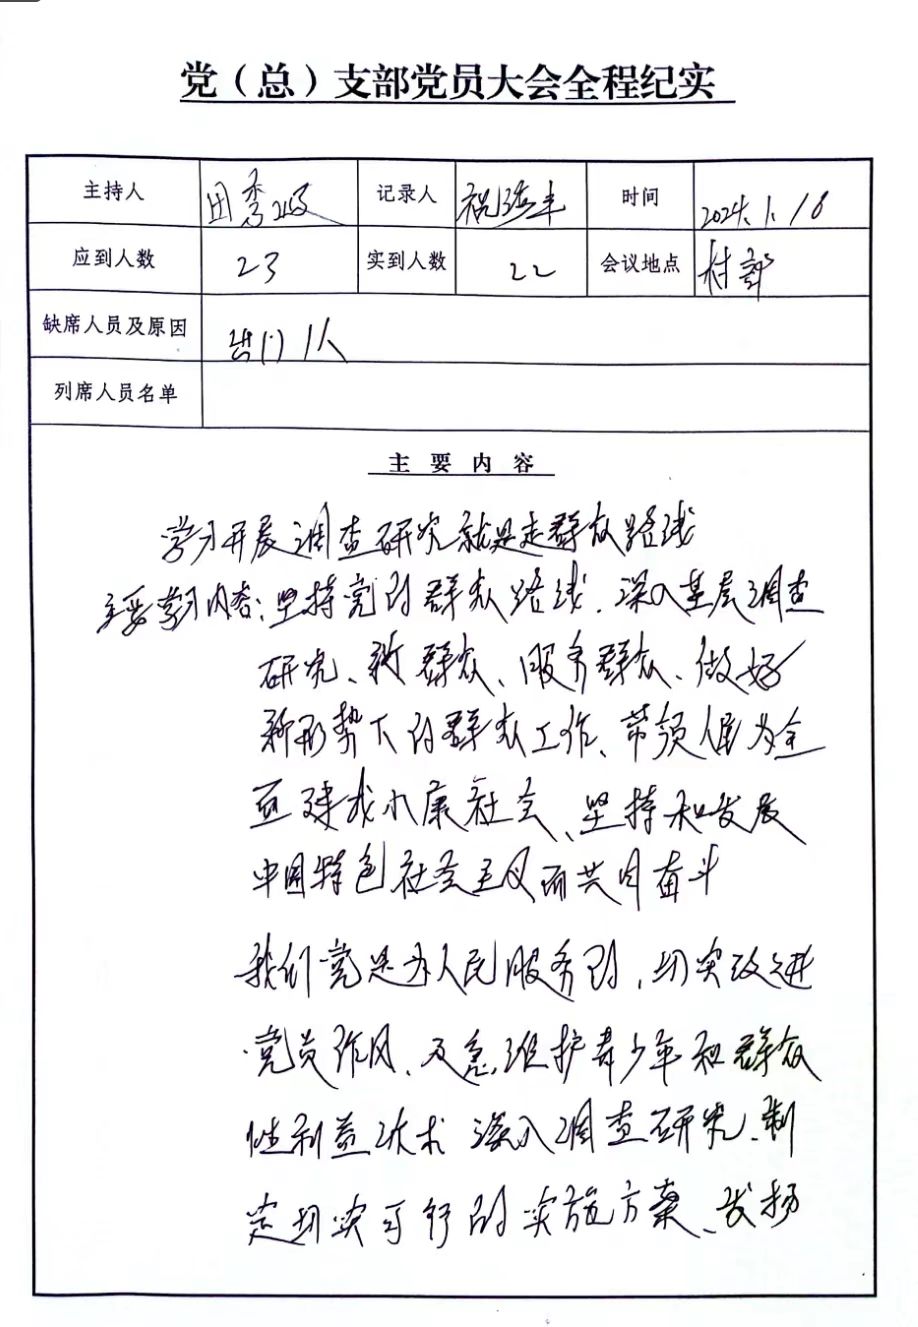 党（总）支部党员大会全程纪实
主持人 田秀 记录人 祝海丰 时间 2024.1.18
应到人数 23 实到人数 22 会议地点 村部
缺席人员及原因 出门1人
列席人员名单
主要内容
学习开展调查研究就是走群众路线
主要学习内容：坚持党的群众路线、深入基层调查
研究、新群众、服务群众、做好
新形势下的群众工作、带领人民为全
面建成小康社会、坚持和发展
中国特色社会主义而共同奋斗
我们党是为人民服务的，切实改进
党员作风、万急维护青少年和群众
性利益 深入调查研究、制
定切实可行的实施方案、发扬